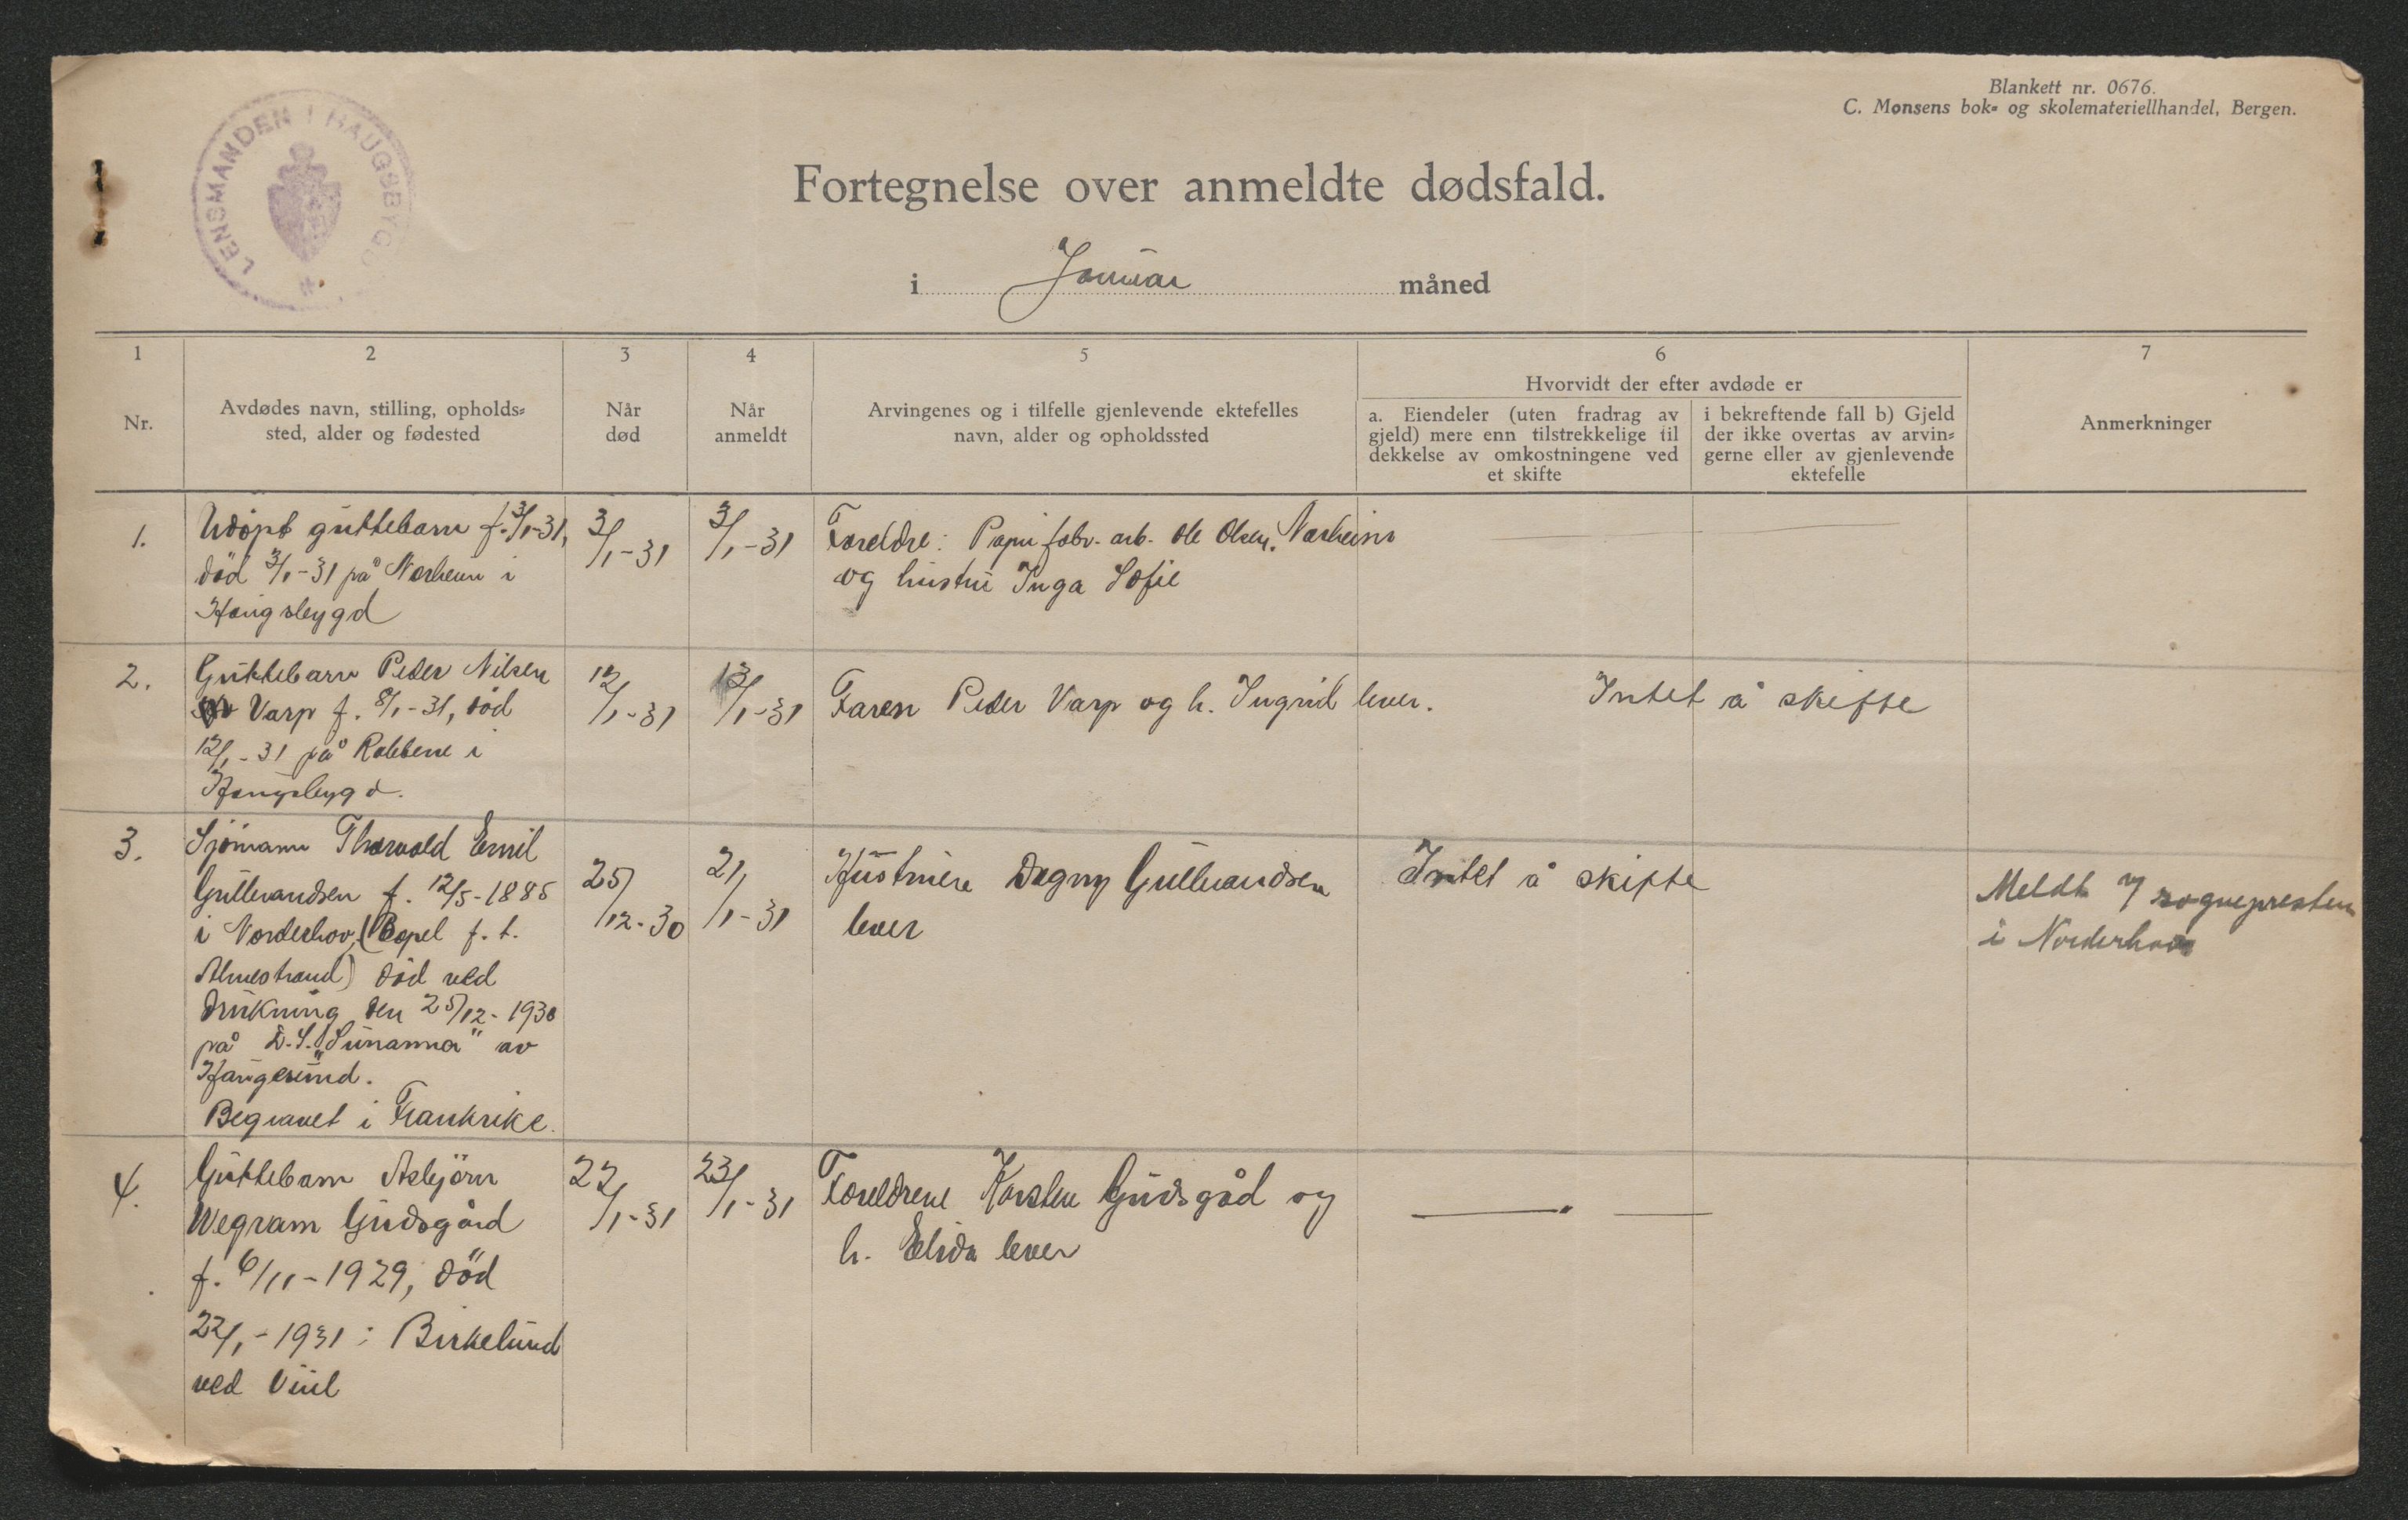 LENSMANDEN I HAUGSBYGD
Blankett nr. 0676.
C. Monsens bok- og skolemateriellhandel, Bergen.
Fortegnelse over anmeldte dødsfald.
i Januar måned
1 2 3 4 5 6 7
Nr.
Avdødes navn, stilling, opholds-
sted, alder og fødested
Når
død
Når
anmeldt
Arvingenes og i tilfelle gjenlevende ektefelles
navn, alder og opholdssted
Hvorvidt der efter avdøde er
a. Eiendeler (uten fradrag av
gjeld) mere enn tilstrekkelige til
dekkelse av omkostningene ved
et skifte
i bekreftende fall b) Gjeld
der ikke overtas av arvin-
gerne eller av gjenlevende
ektefelle
Anmerkninger
1.
Udöpt guttebarn f. 3/1-31,
död 3/1-31 på Norheim i
Haugsbygd
3/1-31
3/1-31
Foreldre: Papirfabr. arb. Ole Olsen, Norheim
og hustru Inga Sofie
2.
Guttebarn Peder Nilsen
Varp f. 8/1-31, död
12/1-31 på Rabbene i
Haugsbygd.
12/1-31
13/1-31
Faren Peder Varp og h. Ingrid lever.
Intet å skifte
3.
Sjömann Thorvald Emil
Gulbrandsen f. 12/5-1885
i Norderhov, (Bopel f. t.
Almestrand) död ved
drukning den 25/12-1930
på D.S. "Sunanna" av
Haugesund.
Begravet i Frankrike.
25/12-30
21/1-31
Hustruen Dagny Gulbrandsen
lever
Intet å skifte
Meldt sognepresten
i Norderhov
4.
Guttebarn Asbjörn
Wegram Gudsgård
f. 6/11-1929, död
22/1-1931 i Birkelund
ved Viul
22/1-31
23/1-31
Foreldrene Karsten Gudsgård og
h. Elida lever
— " —